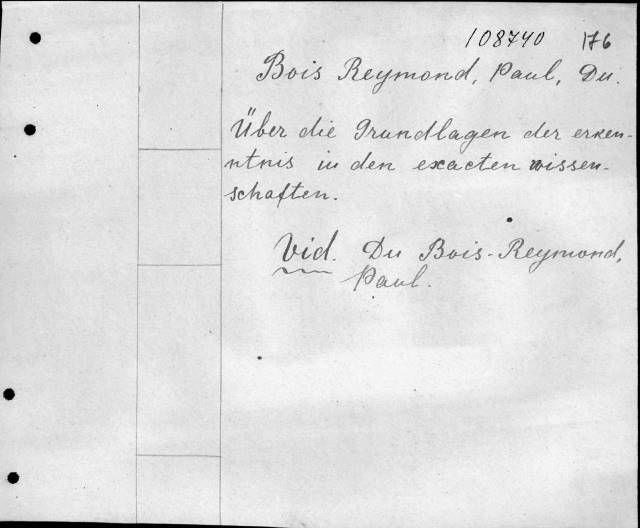 108740 176
Bois Reymond, Paul, Du.
Über die Grundlagen der erken-
ntnis in den exacten wissen-
schaften.
Vid. Du Bois-Reymond,
Paul.